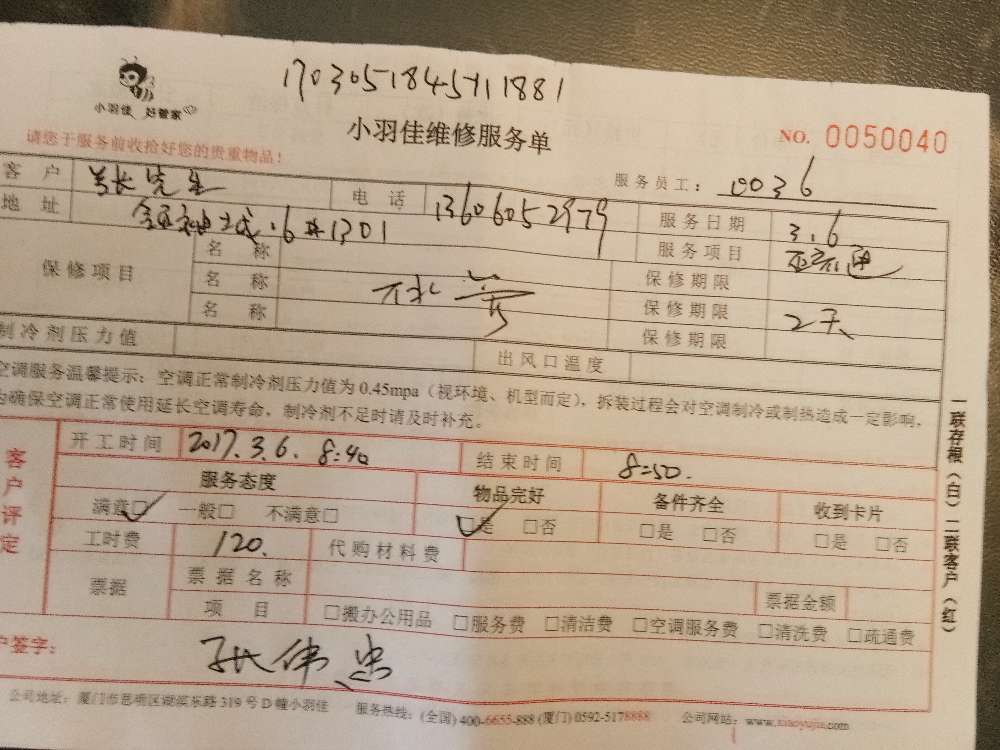 1703051845711881
小羽佳 好管家
小羽佳维修服务单
NO. 0050040
请您于服务前收拾好您的贵重物品!
服务员工: 0036
客户 先生 电话 13606052979 服务日期 3.6
地址 城.6#1301 服务项目 通
保修项目 名称 保修期限
名称 保修期限 2天
名称 保修期限
制冷剂压力值 出风口温度
空调服务温馨提示:空调正常制冷剂压力值为0.45mpa(视环境、机型而定),拆装过程会对空调制冷或制热造成一定影响,
为确保空调正常使用延长空调寿命,制冷剂不足时请及时补充。
客户评定
开工时间 2017.3.6. 8:40 结束时间 8=50.
服务态度 物品完好 备件齐全 收到卡片
满意□ 一般□ 不满意□ □是 □否 □是 □否 □是 □否
工时费 120. 代购材料费
票据 票据名称 票据金额
项目 □搬办公用品 □服务费 □清洁费 □空调服务费 □清洗费 □疏通费
户签字: 张伟忠
公司地址:厦门市思明区湖滨东路319号D幢小羽佳 服务热线:(全国)400-6655-888(厦门)0592-5178888 公司网站:www.xiaoyujia.com
一联存根(白)二联客户(红)